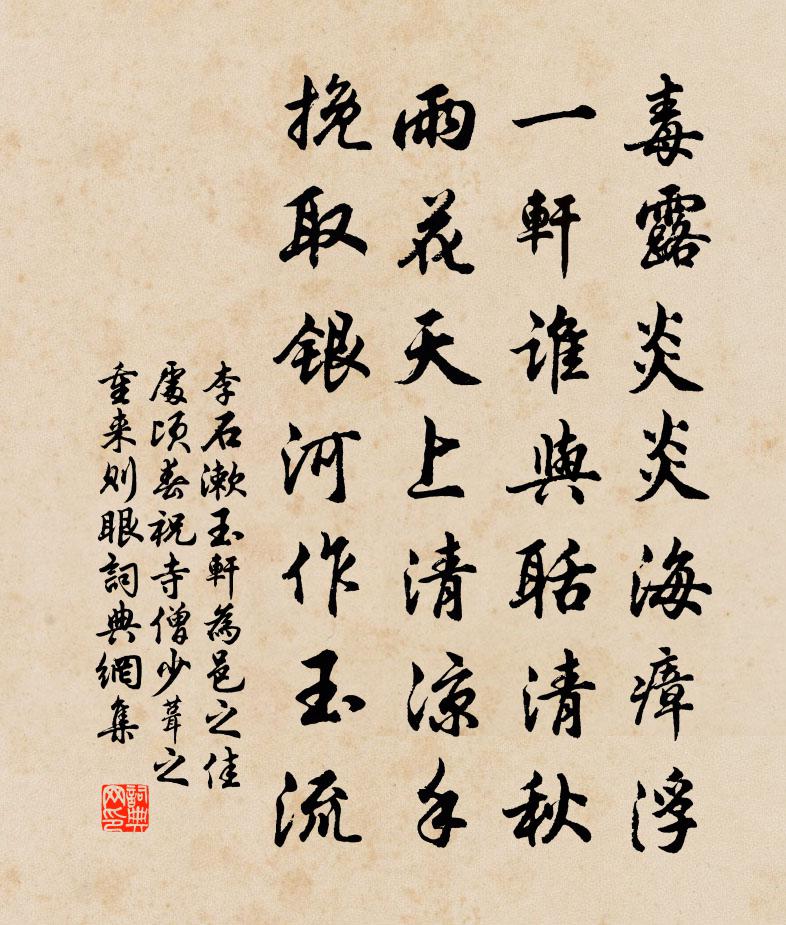 毒露炎炎海瘴浮
一軒誰與聒清秋
雨花天上清涼手
挽取銀河作玉流
李石漱玉軒為邑之佳
處頃春祝寺僧少葺之
重来則眼詞典網集
詞典网印